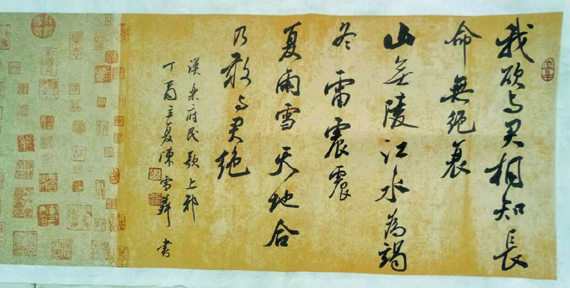 我欲与君相知長
命無絕衰
山無陵江水為竭
冬雷震震
夏雨雪天地合
乃敢与君绝
漢樂府民歌上邪
丁酉立夏陳雪華书